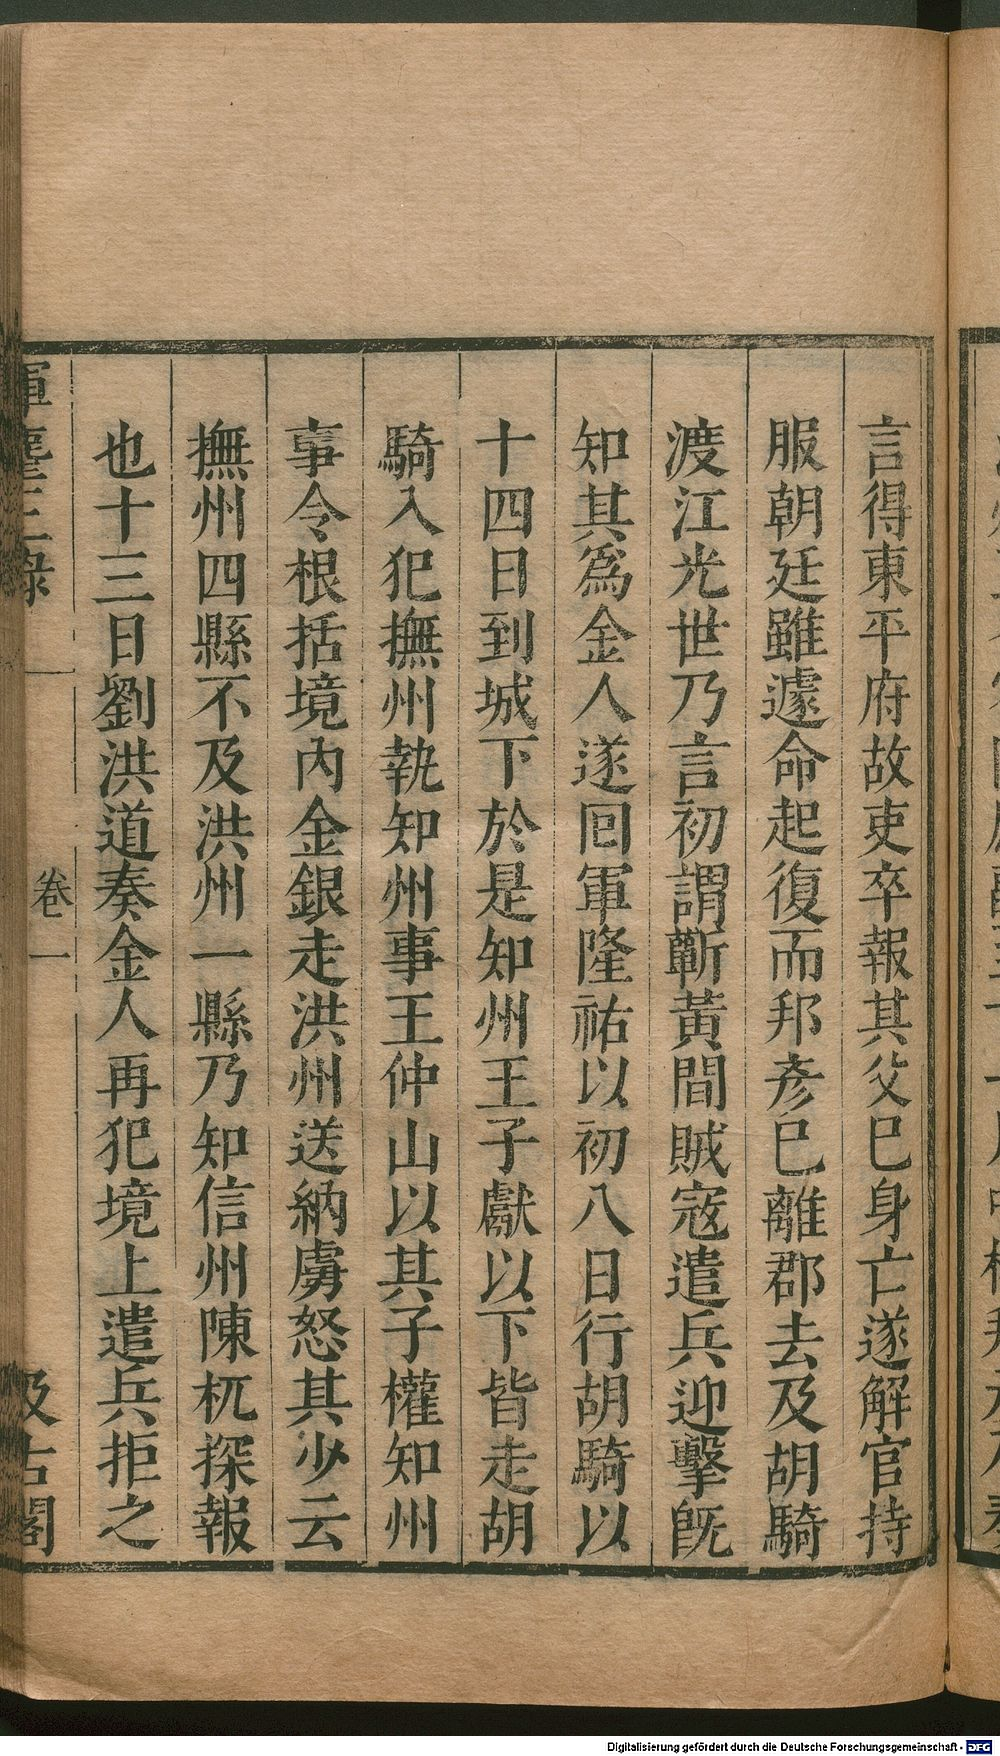 言得東平府故吏卒報其父已身亡遂解官持
服朝廷雖遽命起復而邦彥已離郡去及胡騎
渡江光世乃言初謂蘄黃間賊寇遣兵迎擊旣
知其爲金人遂回軍隆祐以初八日行胡騎以
十四日到城下於是知州王子獻以下皆走胡
騎入犯撫州執知州事王仲山以其子權知州
事令根括境內金銀走洪州送納虜怒其少云
撫州四縣不及洪州一縣乃知信州陳杌探報
也十三日劉洪道奏金人再犯境上遣兵拒之
揮麈三錄
卷一
汲古閣
Digitalisierung gefördert durch die Deutsche Forschungsgemeinschaft - DFG